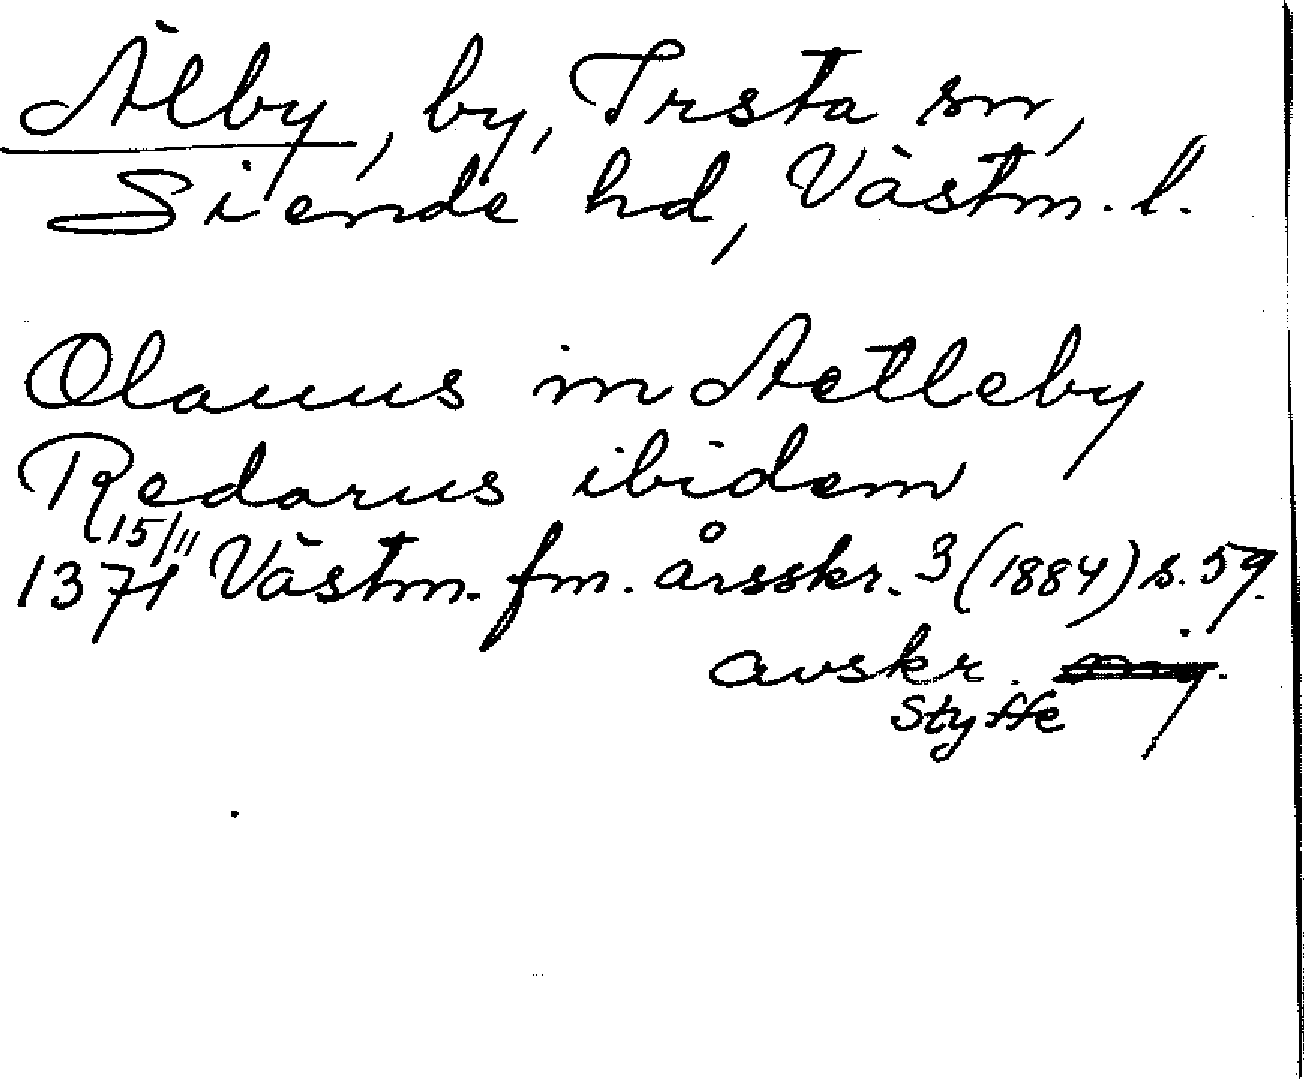 Älby, by, Irsta sn,
Siende hd, Västm. l.
Olauus in Aetleby
Redarus ibidem
15/11
1371 Västm. fm. årsskr. 3 (1884) s. 59.
avskr.
Styffe